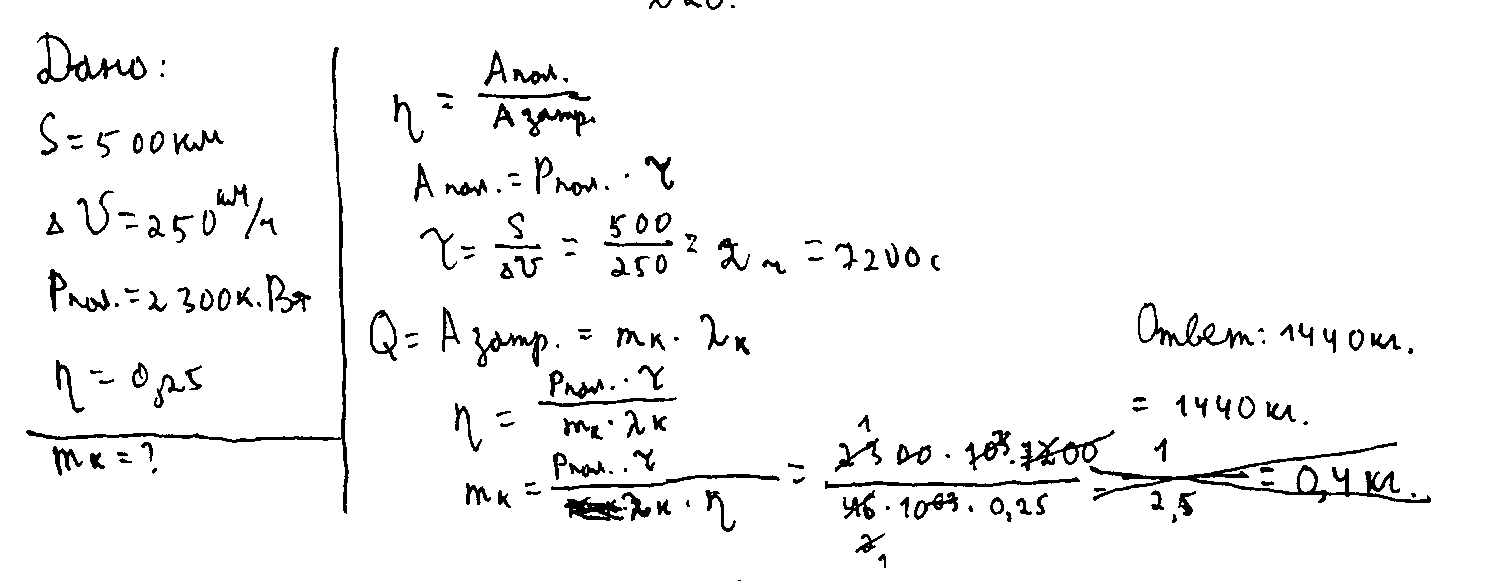 Дано:
S = 500 км
Δ V = 250 км/ч
Pпол. = 2 300 к.Вт
η = 0,25
mк = ?
η = Aпол. / Aзатр.
Aпол. = Pпол. · τ
τ = S / ΔV = 500 / 250 = 2 ч = 7200 с
Q = Aзатр. = mк · λк
η = Pпол. · τ / mк · λк
mк = Pпол. · τ / λк · η = 2300 · 10³ · 7200 / 46 · 10⁶ · 0,25
= 1 / 2,5 = 0,4 кг.
= 1440 кг.
Ответ: 1440 кг.